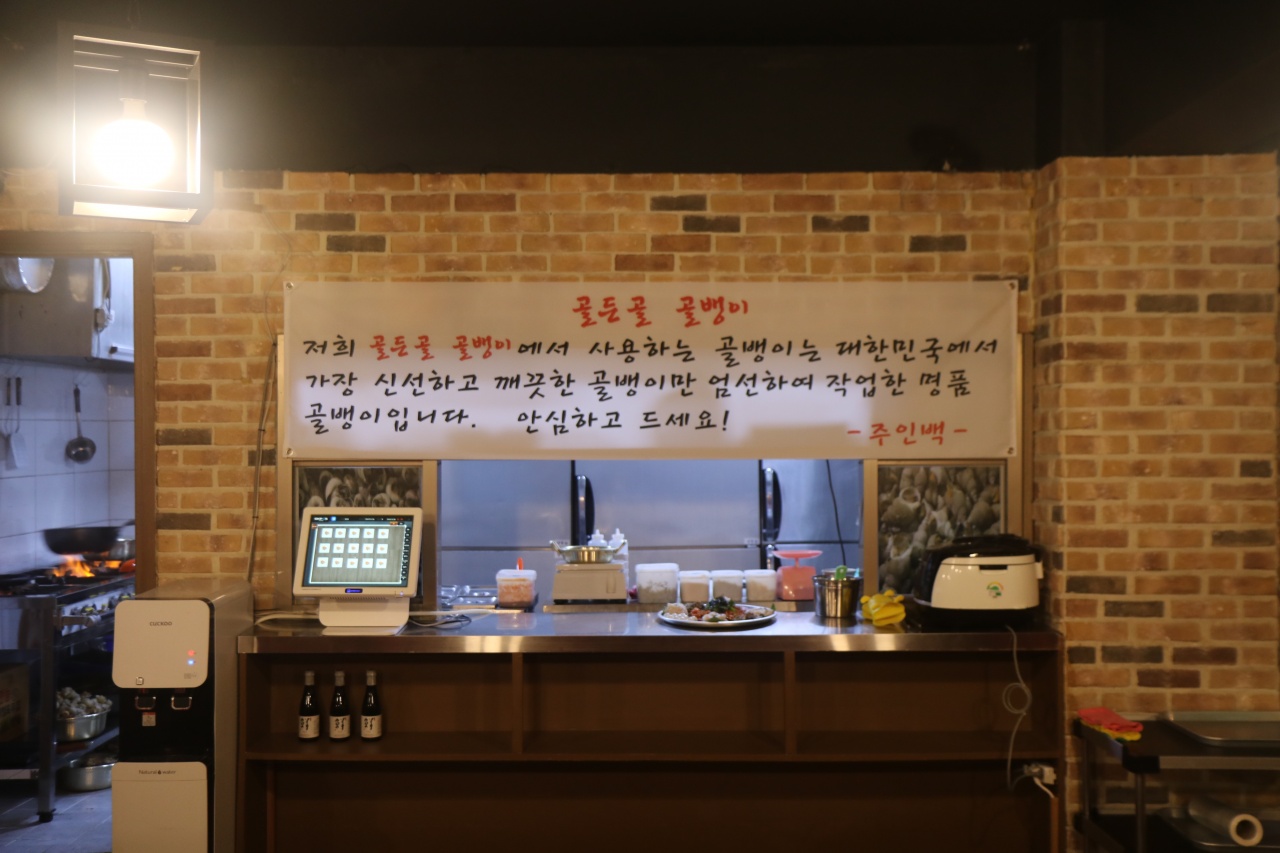 골둔골 골뱅이
저희 골둔골 골뱅이에서 사용하는 골뱅이는 대한민국에서
가장 신선하고 깨끗한 골뱅이만 엄선하여 작업한 명품
골뱅이입니다. 안심하고 드세요!
-주인백-
CUCKOO